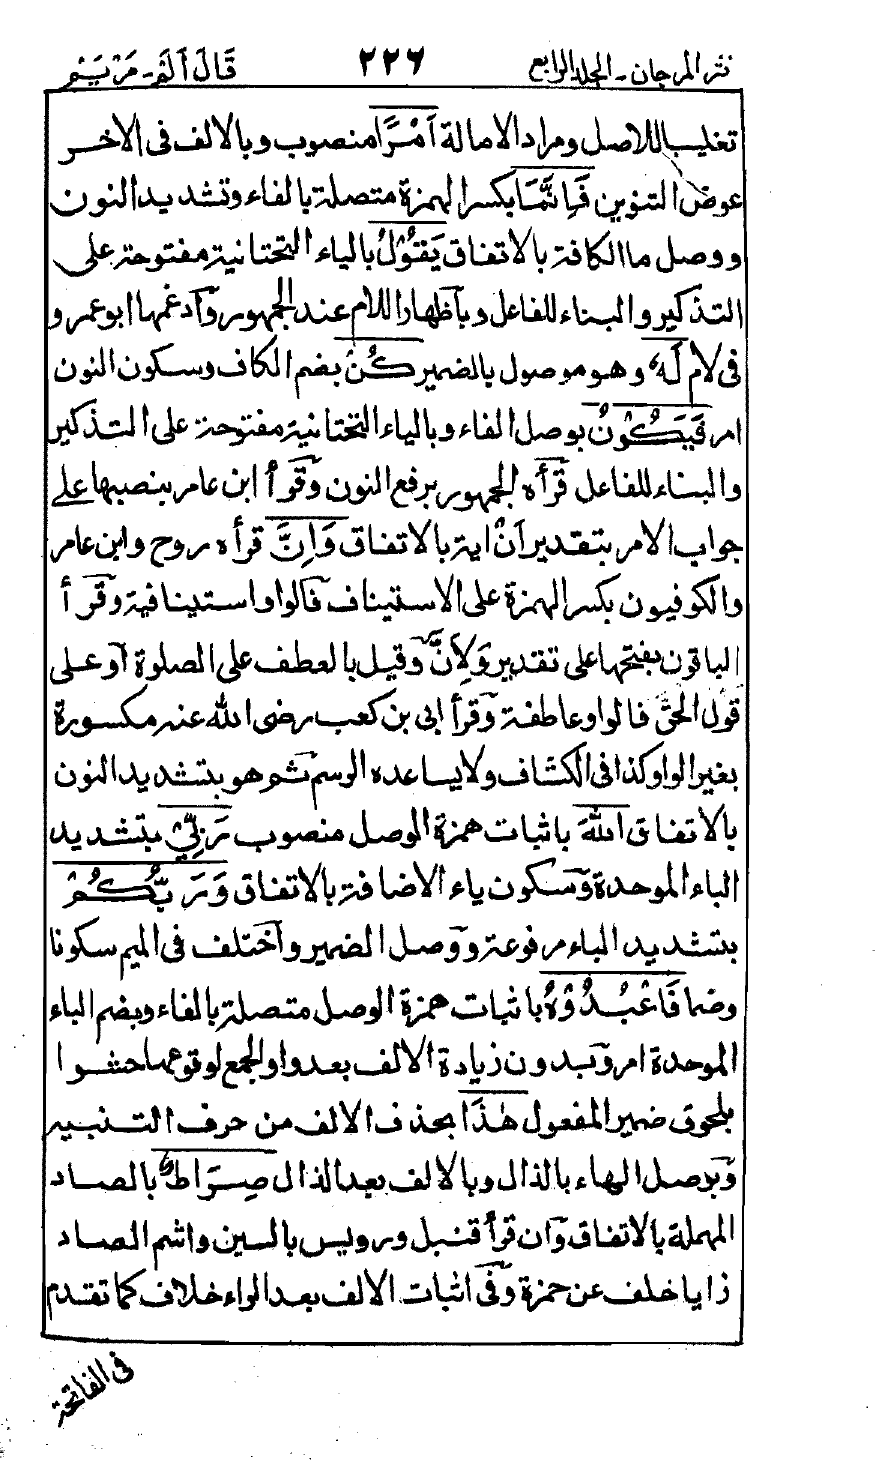 نثر المرجان - الجلد الرابع ٢٢٦ قَالَ اَلَمْ - مَرْيَمْ
تغليبا للاصل ومراد الامالة اَمْرًا منصوب وبالالف فى الاخر
عوض التنوين فَاِنَّمَا بكسر الهمزة متصلة بالفاء وتشديد النون
ووصل ما الكافة بالاتفاق يَقُوْلُ بالياء التحتانية مفتوحة على
التذكير والبناء للفاعل وباظهار اللام عند الجمهور وآدغمها ابو عمرو
فى لام لَهٗ وهو موصول بالضمير كُنْ بضم الكاف وسكون النون
امر فَيَكُوْنُ بوصل الفاء وبالياء التحتانية مفتوحة على التذكير
والبناء للفاعل قرأه الجمهور برفع النون وقرأ ابن عامر بنصبها على
جواب الامر بتقدير اَنْ اية بالاتفاق وَاِنَّ قرأه روح وابن عامر
والكوفيون بكسر الهمزة على الاستيناف فالواو استينافية وقرأ
الباقون بفتحها على تقدير وَلِاَنَّ وقيل بالعطف على الصلوة آو على
قول الحق فالواو عاطفة وقرأ ابى بن كعب رضى الله عنه مكسورة
بغير الواو كذا فى الكشاف ولا يساعده الرسم ثم هو بتشديد النون
بالاتفاق اللهَ باثبات همزة الوصل منصوب رَبِّيْ بتشديد
الباء الموحدة وسكون ياء الاضافة بالاتفاق وَرَبُّكُمْ
بتشديد الباء مرفوعة ووصل الضمير وآختلف فى الميم سكونا
وضما فَاعْبُدُوْهُ باثبات همزة الوصل متصلة بالفاء وبضم الباء
الموحدة امر وبدون زيادة الالف بعد واو الجمع لوقوعها حشوا
بلحوق ضمير المفعول هٰذَا بحذف الالف من حرف التنبيه
وبوصل الهاء بالذال وبالالف بعد الذال صِرَاطٌ بالصاد
المهملة بالاتفاق وآن قرأ قنبل ورويس بالسين واشم الصاد
زايا خلف عن حمزة وفى اثبات الالف بعد الراء خلاف كما تقدم
فى الفاتحة